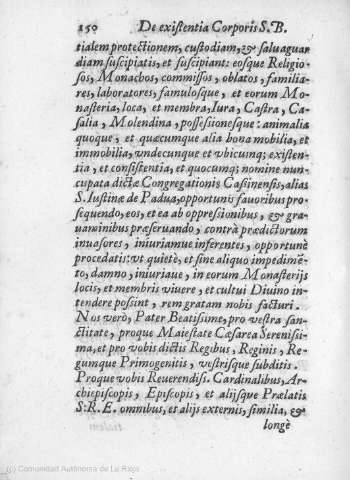 150 De existentia Corporis S. B.
tialem protectionem, custodiam, & saluaguar
diam suscipiatis, et suscipiant: eosque Religio-
sos, Monachos, commissos, oblatos, familia-
res, laboratores, famulosque, et eorum Mo-
nasteria, loca, et membra, Iura, Castra, Ca-
salia, Molendina, possessionesque: animalia
quoque, et quæcumque alia bona mobilia, et
immobilia, vndecunque et vbicumq; existen-
tia, et consistentia, et quocumq; nomine nun-
cupata dictæ Congregationis Casinensis, alias
S. Iustinæ de Padua, opportunis fauoribus pro-
sequendo, eos, et ea ab oppressionibus, & gra-
uaminibus præseruando, contrà prædictorum
inuasores, iniuriamue inferentes, opportunè
procedatis: vt quietò, et sine aliquo impedimẽ-
to, damno, iniuriaue, in eorum Monasterijs
locis, et membris viuere, et cultui Diuino in-
tendere possint, rem gratam nobis facturi.
Nos verò, Pater Beatissime, pro vestra san-
ctitate, proque Maiestate Cæsarea Serenissi-
ma, et pro vobis dictis Regibus, Reginis, Re-
gumque Primogenitis, vestrisque subditis.
Proque vobis Reuerendiss. Cardinalibus, Ar-
chiepiscopis, Episcopis, et alijsque Prælatis
S. R. E. omnibus, et alijs externis, similia, &
longè
(c) Comunidad Autónoma de La Rioja